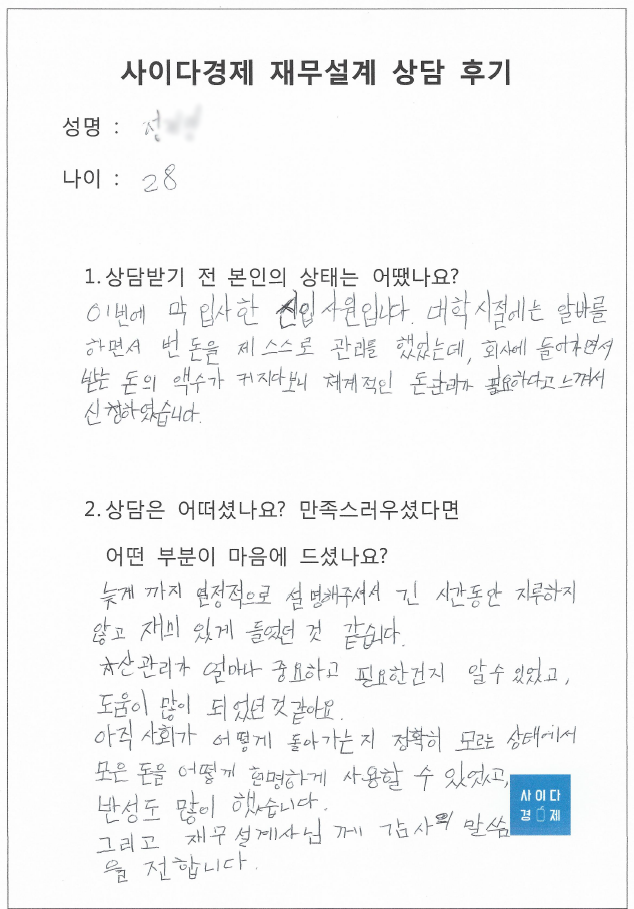 사이다경제 재무설계 상담 후기
성명 : 전
나이 : 28
1. 상담받기 전 본인의 상태는 어땠나요?
이번에 막 입사한 신입사원입니다. 대학시절에는 알바를
하면서 번 돈을 제 스스로 관리를 했었는데, 회사에 들어가면서
받는 돈의 액수가 커지다보니 체계적인 돈관리가 필요하다고 느껴서
신청하였습니다.
2. 상담은 어떠셨나요? 만족스러우셨다면
어떤 부분이 마음에 드셨나요?
늦게 까지 열정적으로 설명해주셔서 긴 시간동안 지루하지
않고 재미 있게 들었던 것 같습니다.
자산관리가 얼마나 중요하고 필요한건지 알 수 있었고,
도움이 많이 되었던것 같아요.
아직 사회가 어떻게 돌아가는지 정확히 모르는 상태에서
모은 돈을 어떻게 현명하게 사용할 수 있었고,
반성도 많이 했습니다.
그리고 재무설계사님 께 감사의 말씀
을 전합니다.
사이다
경제